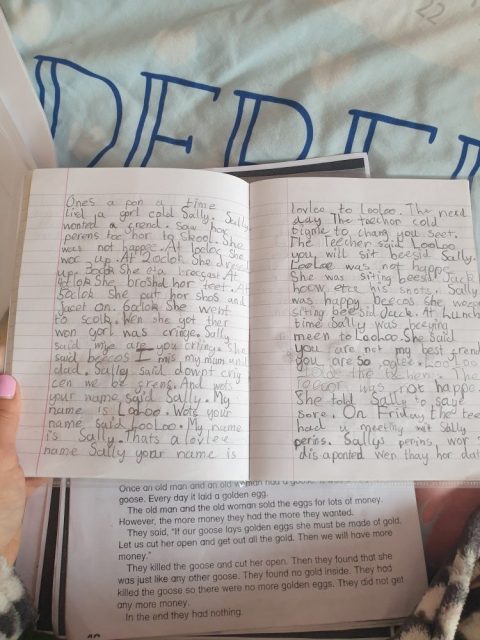 22
Ones a pon a time
livd a gorl cold Sally. Sally
wonted a frend. Saw hor
perens toc hor to skool. She
was not happee. At 1oclok She
wor up. At 2oclok. She dresed
up. 3oclok She eta brecgast. At
4oclok She broshd hor teet. At
5oclok She put hor shos and
Jacet on. 6aclok She went
to scolk. Wen she got ther
won gorl was cringe. Sally
said wiye are you cringe. She
said becoos I mis my mum and
dad. Sally said downt criy
cen we be grens. And wots
your name said Sally. My
name is LooLoo. Wots your
name said LooLoo. My name
is Sally. Thats a lovlee
name Sally your name is
lovlee to LooLoo. The next
day The teecher cold
tigme to chang you seet.
The Teecher said LooLoo
you will sit beesid Sally.
LooLoo was not happe.
She was siting beesid Jack
hoow ets his snots. Sally
was happy beecos she
siting beesid Jack. At Lunch
time Sally was beeying
meen to LooLoo. She Said
you are not my best frend
you are so oglee. LooLoo
teecher was not happe.
She told Sally to saye
sore. On Friday the tee
had u meeting wet Sally
perins. Sallys perins, wor
dis aponted wen thay hor dat
Once an old man and an old woman had a goose.
goose. Every day it laid a golden egg.
The old man and the old woman sold the eggs for lots of money.
However, the more money they had the more they wanted.
They said, "If our goose lays golden eggs she must be made of gold.
Let us cut her open and get out all the gold. Then we will have more
money."
They killed the goose and cut her open. Then they found that she
was just like any other goose. They found no gold inside. They had
killed the goose so there were no more golden eggs. They did not get
any more money.
In the end they had nothing.